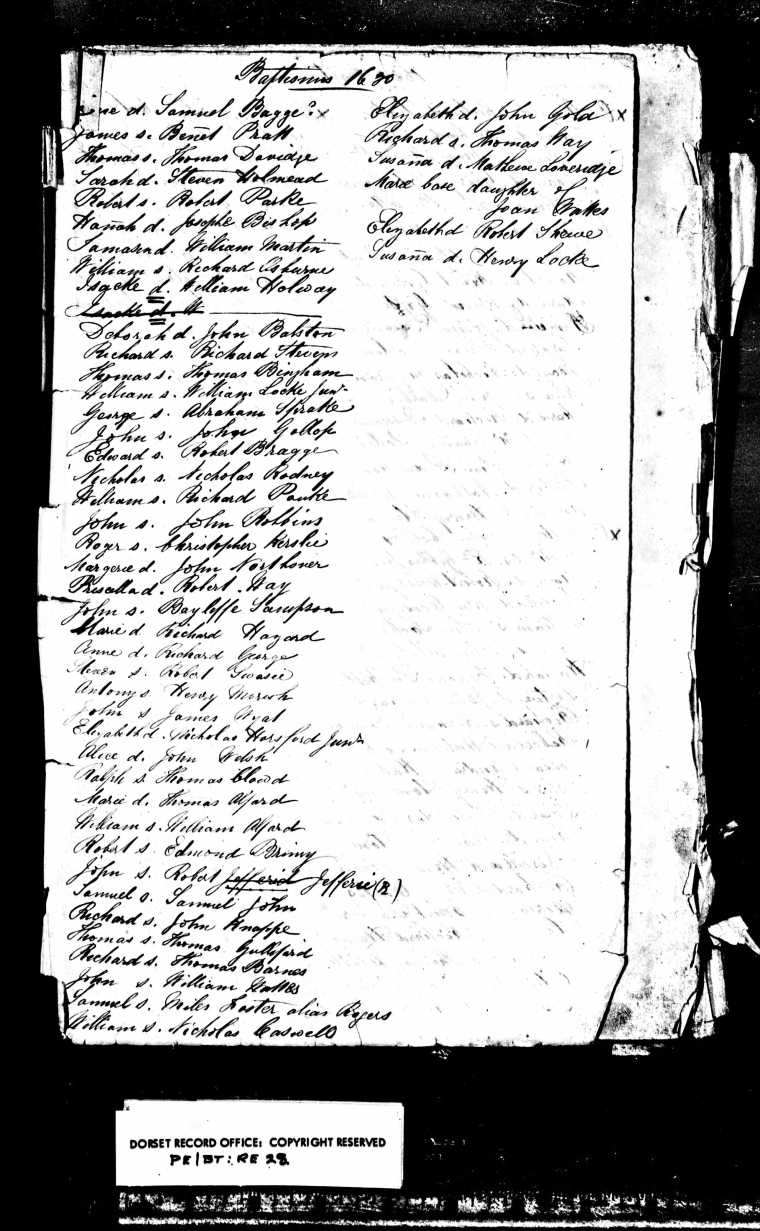 Baptismus 1630
d. Samuel Bagge
James s. Benet Pratt
Thomas s. Thomas Davidge
Sarah d. Steven Holmead
Robert s. Robert Parke
Hanah d. Josephe Bishop
d. William Martin
William s. Richard Osburne
Isacke d. William Holway
Isacke d. W
Deborah d. John Balston
Richard s. Richard Stevens
Thomas s. Thomas Bingham
William s. William Locke Junr
George s. Abraham
John s. John Gollop
Edward s. Robert Bragge
Nicholas s. Nicholas Rodney
William s. Richard Pauke
John s. John Robbins
Roger s. Christopher Kerslie
Margerie d. John Northover
Priscilla d. Robert Hay
John s. Bayleffe Sampson
Marie d. Richard Hazard
Anne d. Richard George
Steven s. Robert
Antony s Henry
John s James Wyat
Elizabeth d. Nicholas Horsford Junr
Alice d. John Welsh
Ralph s. Thomas Cload
Marie d. Thomas Alford
William s. William Alford
Robert s. Edmond Briny
John s. Robert Jefferid Jefferie (2)
Samuel s. Samuel John
Richard s. John Knappe
Thomas s. Thomas Gullifird
Richard s. Thomas Barnes
John s. William Wattes
Samuel s. Miles Foster alias Rogers
William s. Nicholas Caswell
Elizabeth d. John Gold x
Richard s. Thomas Way
Susaña d. Mathewe Loveridge
Marie base daughter of
Joan Wattes
Elizabeth d Robert Skewe
Susaña d. Henry Locke
x
DORSET RECORD OFFICE: COPYRIGHT RESERVED
PE/BT: RE 28